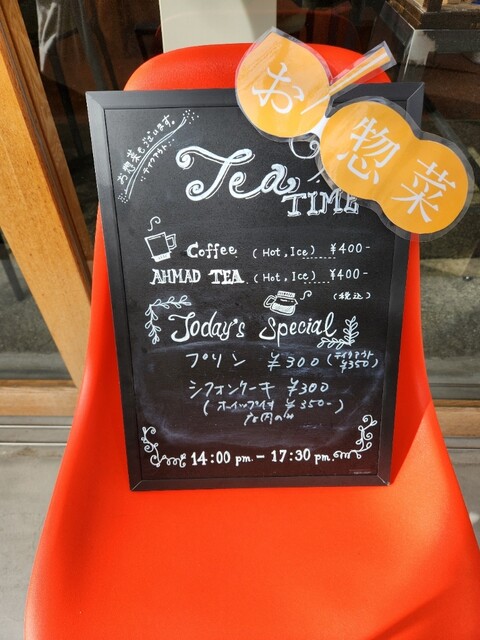 お惣菜
お惣菜もございます。
テイクアウト
Tea
TIME
Coffee (Hot, Ice) ¥400-
AHMAD TEA (Hot, Ice) ¥400-
(税込)
Today's Special
プリン ¥300 (テイクアウト ¥350)
シフォンケーキ ¥300
(ホイップ付 ¥350-)
14:00 pm. - 17:30 pm.